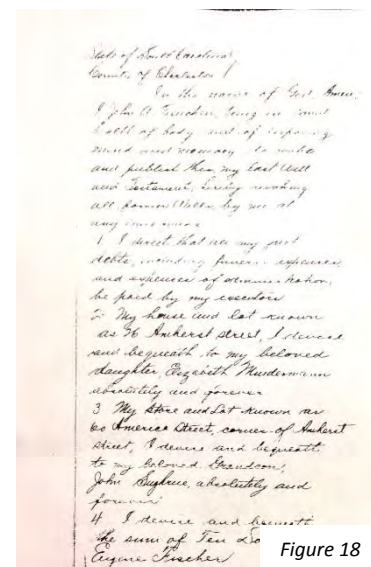 State of South Carolina
County of Charleston
In the name of God, Amen.
I John A. being in
health of body and of
mind and memory to make
and publish this, my last Will
and Testament, hereby revoking
all former Wills by me at
any time made
1 I direct that all my just
debts, including funeral expenses
and expenses of administration,
be paid by my executors
2 My house and lot known
as 76 Amherst street, I devise
and bequeath to my beloved
daughter, Elizabeth Mundermann
absolutely and forever
3 My Store and Lot known as
60 America Street, corner of Amherst
street, I devise and bequeath
to my beloved Grandson,
John absolutely and
forever
4 I devise and bequeath
the sum of Ten
Eugene Fischer
Figure 18